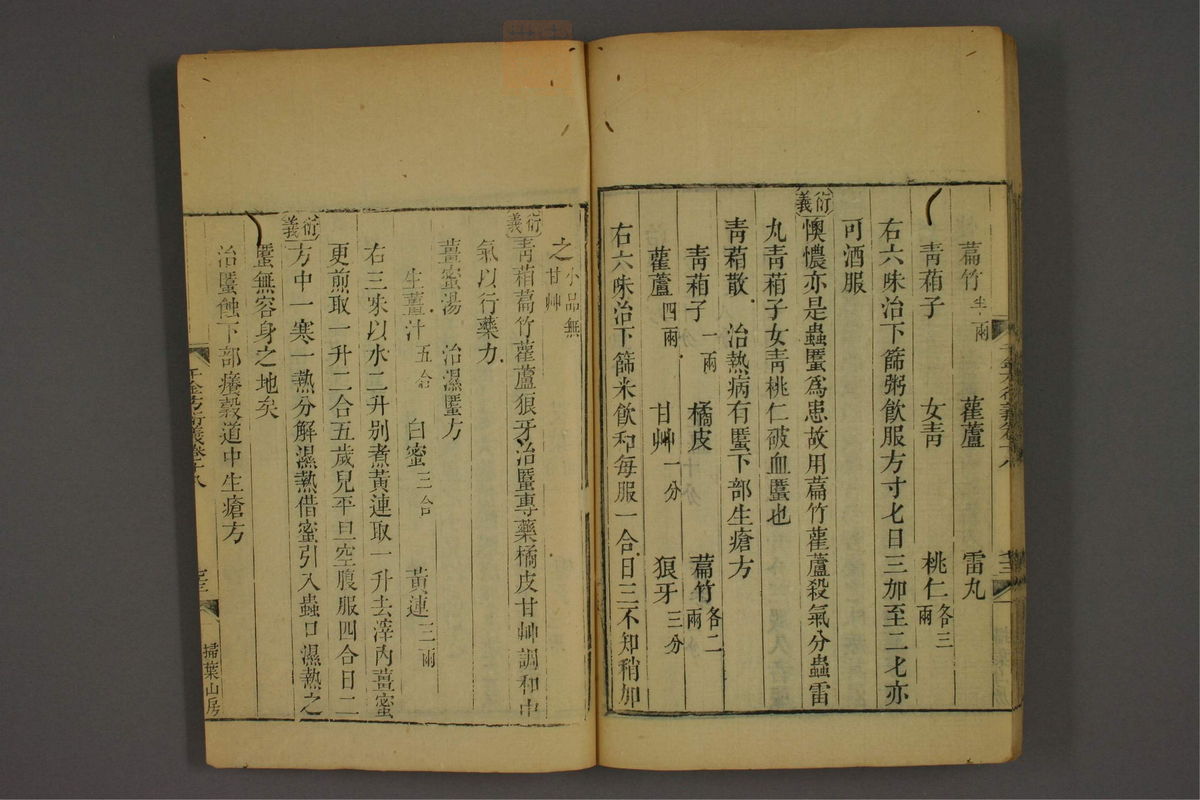 萹竹半兩 雚蘆 雷丸
青葙子 女青 桃仁各三兩
右六味治下篩粥飲服方寸匕日三加至二匕亦
可酒服
衍義 懊憹亦是蟲䘌爲患故用萹竹雚蘆殺氣分蟲雷
丸青葙子女青桃仁破血䘌也
青葙散 治熱病有䘌下部生瘡方
青葙子一兩 橘皮 萹竹各二兩
雚蘆四兩 甘艸一分 狼牙三分
右六味治下篩米飲和每服一合日三不知稍加
之小品無甘艸
衍義 青葙萹竹雚蘆狼牙治䘌專藥橘皮甘艸調和中
氣以行藥力
薑蜜湯 治濕䘌方
生薑汁五合 白蜜三合 黃連三兩
右三味以水二升别煮黃連取一升去滓內薑蜜
更煎取一升二合五歲兒平旦空腹服四合日二
衍義 方中一寒一熱分解濕熱借蜜引入蟲口濕熱之
䘌無容身之地矣
治䘌蝕下部癢穀道中生瘡方
千金方衍義卷十八
掃葉山房